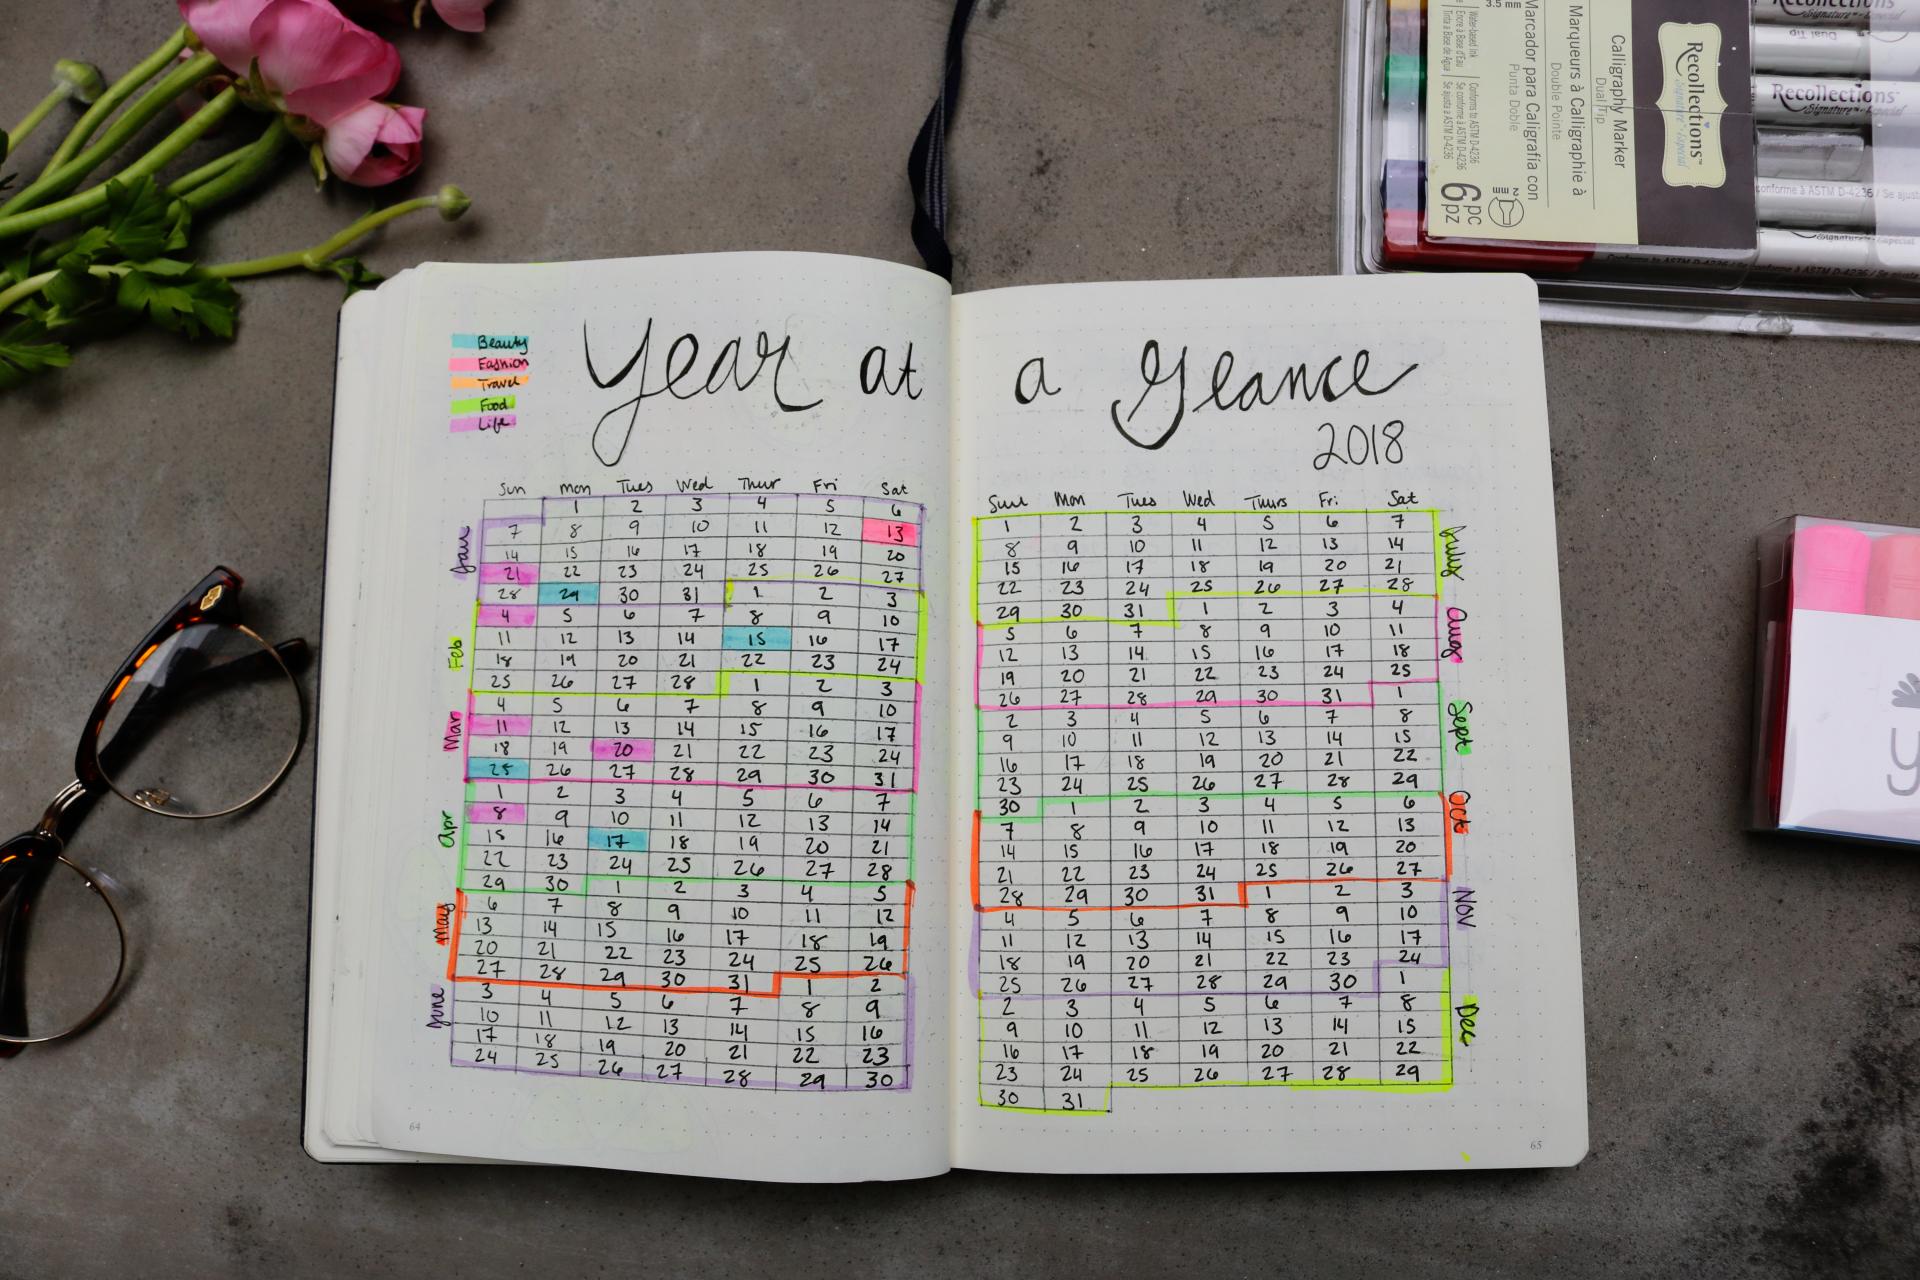 Beauty
Fashion
Travel
Food
Life
Year at a Glance
2018
Sun Mon Tues Wed Thur Fri Sat
Jan
1 2 3 4 5 6
7 8 9 10 11 12 13
14 15 16 17 18 19 20
21 22 23 24 25 26 27
28 29 30 31 1 2 3
Feb
4 5 6 7 8 9 10
11 12 13 14 15 16 17
18 19 20 21 22 23 24
25 26 27 28 1 2 3
Mar
4 5 6 7 8 9 10
11 12 13 14 15 16 17
18 19 20 21 22 23 24
25 26 27 28 29 30 31
Apr
1 2 3 4 5 6 7
8 9 10 11 12 13 14
15 16 17 18 19 20 21
22 23 24 25 26 27 28
29 30 1 2 3 4 5
May
6 7 8 9 10 11 12
13 14 15 16 17 18 19
20 21 22 23 24 25 26
27 28 29 30 31 1 2
June
3 4 5 6 7 8 9
10 11 12 13 14 15 16
17 18 19 20 21 22 23
24 25 26 27 28 29 30
64
Sun Mon Tues Wed Thurs Fri Sat
July
1 2 3 4 5 6 7
8 9 10 11 12 13 14
15 16 17 18 19 20 21
22 23 24 25 26 27 28
29 30 31 1 2 3 4
Aug
5 6 7 8 9 10 11
12 13 14 15 16 17 18
19 20 21 22 23 24 25
26 27 28 29 30 31 1
Sept
2 3 4 5 6 7 8
9 10 11 12 13 14 15
16 17 18 19 20 21 22
23 24 25 26 27 28 29
30 1 2 3 4 5 6
Oct
7 8 9 10 11 12 13
14 15 16 17 18 19 20
21 22 23 24 25 26 27
28 29 30 31 1 2 3
Nov
4 5 6 7 8 9 10
11 12 13 14 15 16 17
18 19 20 21 22 23 24
25 26 27 28 29 30 1
Dec
2 3 4 5 6 7 8
9 10 11 12 13 14 15
16 17 18 19 20 21 22
23 24 25 26 27 28 29
30 31
65
Recollections™
Signature - Especial
Calligraphy Marker
Dual Tip
Marqueurs à Calligraphie à
Double Pointe
Marcador para Caligrafía con
Punta Doble
3.5 mm
2 mm
Water-based Ink Conforms to ASTM D-4236
Encre à Base d'Eau Se conforme à ASTM D-4236
Tinta a Base de Agua Se ajusta a ASTM D-4236
6 pc
pz
Recollections
Signature - Especial
Dual Tip
Recollections
Signature - Especial
conforme à ASTM D-4236 / Se ajust
Signature - Especial
Conforms to ASTM D-4236 / Se conforme à ASTM D-4236 / Se ajusta
y